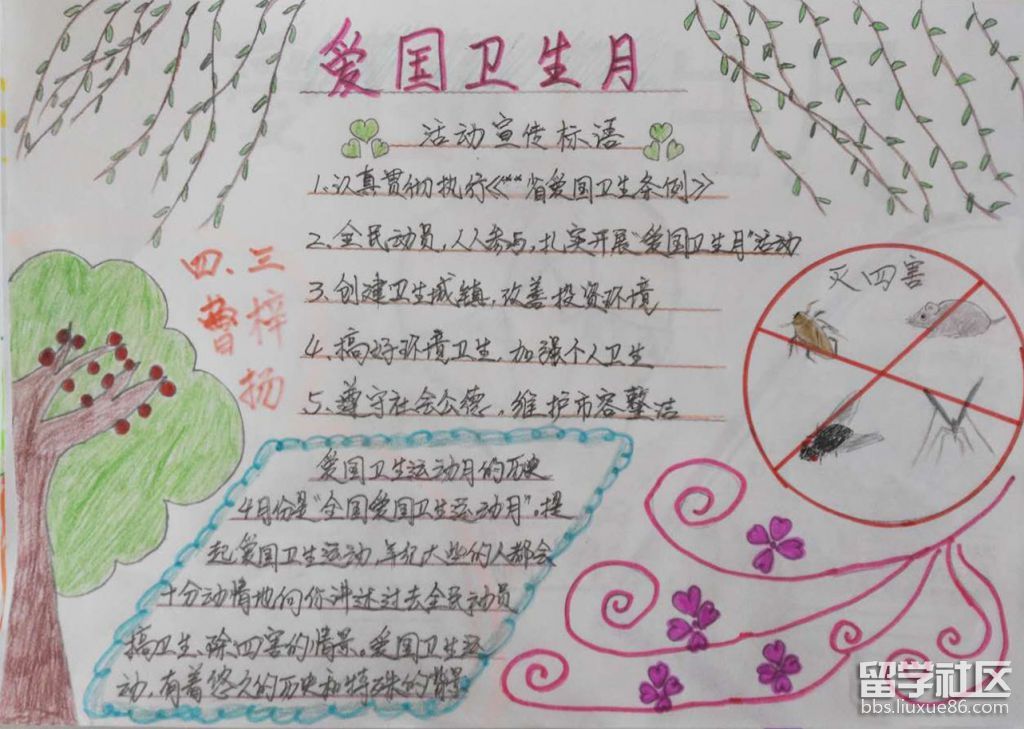 爱国卫生月
活动宣传标语
1.认真贯彻执行《**省爱国卫生条例》
2.全民动员,人人参与,扎实开展"爱国卫生月"活动
3.创建卫生城镇,改善投资环境
4.搞好环境卫生,加强个人卫生
5.遵守社会公德,维护市容整洁
四、三
曹梓
扬
灭四害
爱国卫生运动月的历史
4月份是"全国爱国卫生运动月"。提
起爱国卫生运动,年纪大些的人都会
十分动情地向你讲述过去全民动员
搞卫生、除四害的情景。爱国卫生运
动,有着悠久的历史和特殊的背景
留学社区
bbs.liuxue86.com